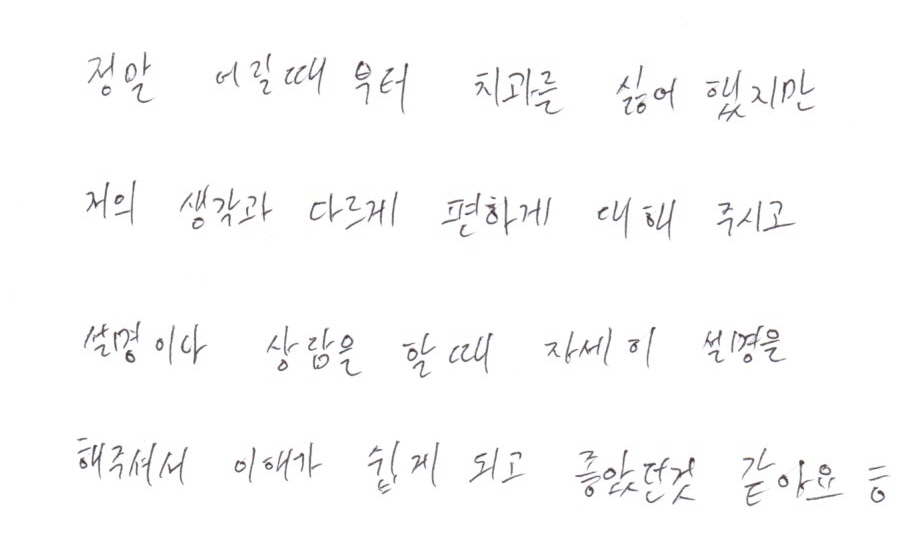 정말 어릴때 부터 치과를 싫어 했지만
저의 생각과 다르게 편하게 대해 주시고
설명이나 상담을 할 때 자세히 설명을
해주셔서 이해가 쉽게 되고 좋았던것 같아요 ㅎ